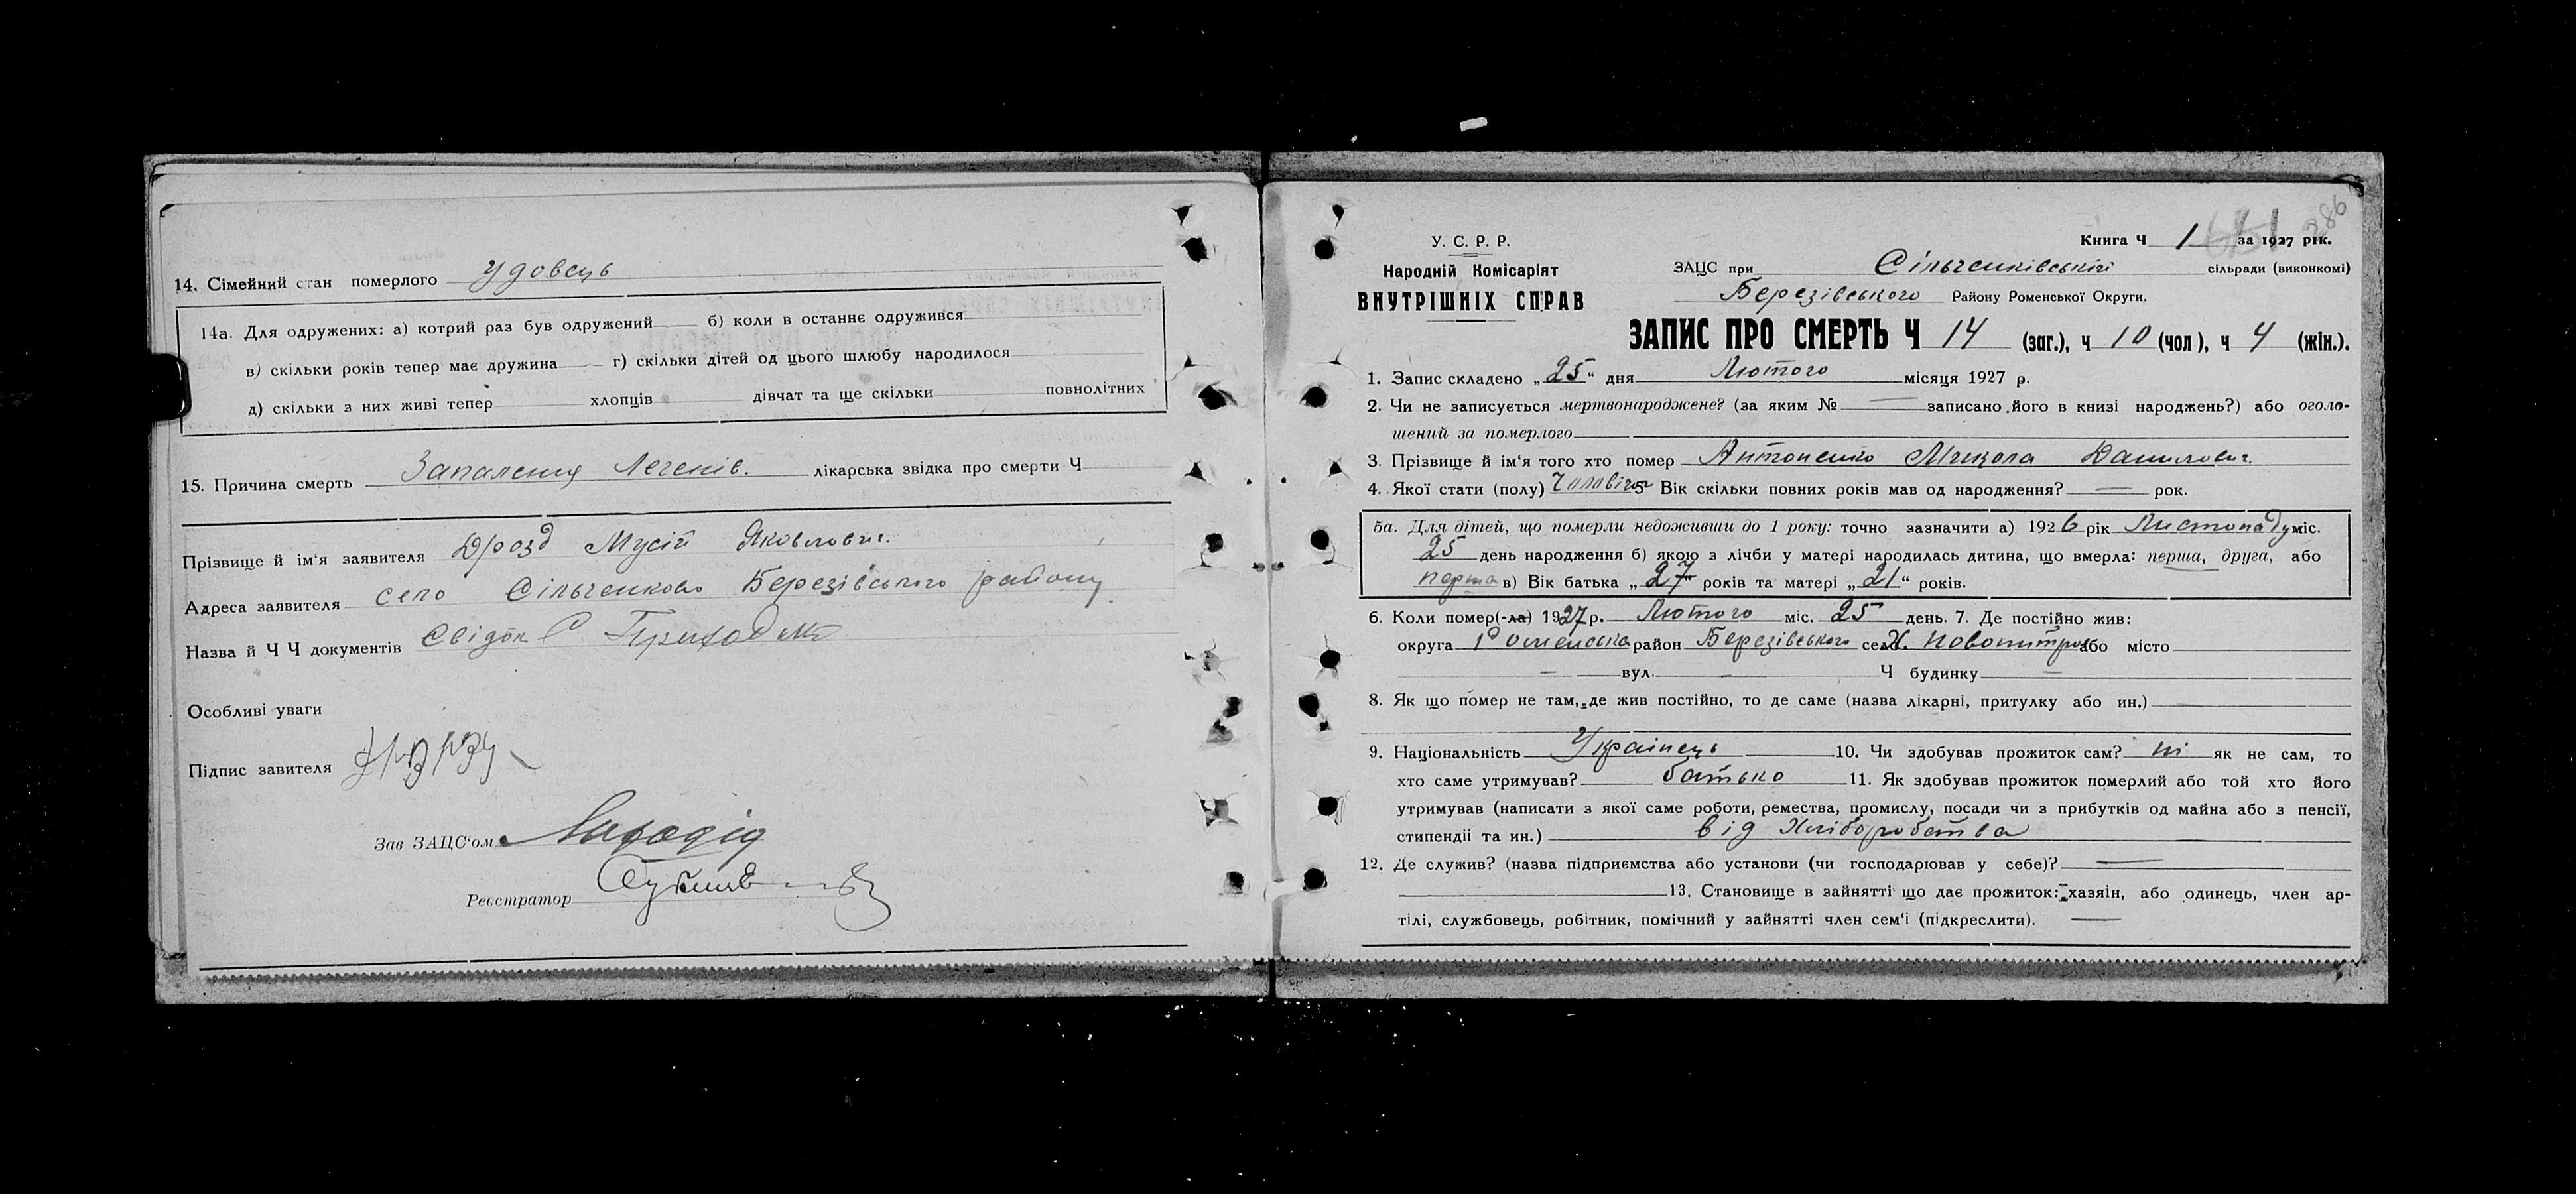 14. Сімейний стан померлого удовець
14а. Для одружених: а) котрий раз був одружений б) коли в останнє одружився
в) скільки років тепер має дружина г) скільки дітей од цього шлюбу народилося
д) скільки з них живі тепер хлопців дівчат та ще скільки повнолітних
15. Причина смерть Запалення Легенів. лікарська звідка про смерти Ч
Прізвище й ім'я заявителя Дрозд Мусій Яковлович.
Адреса заявителя село Сільченково Березівського району
Назва й Ч Ч документів Свідок Приходько
Особливі уваги
Підпис завителя
Зав ЗАЦС'ом
Реєстратор
286
У. С. Р. Р.
Книга Ч 1 за 1927 рік.
Народній Комісаріят
ВНУТРІШНІХ СПРАВ
ЗАЦС при Сільченківській сільради (виконкомі)
Березівського Району Роменської Округи.
ЗАПИС ПРО СМЕРТЬ Ч 14 (заг.), ч 10 (чол), ч 4 (жін.).
1. Запис складено „25" дня Лютого місяця 1927 р.
2. Чи не записується мертвонароджене? (за яким № — записано його в книзі народжень?) або оголо-
шений за померлого
3. Прізвище й ім'я того хто помер Антоненко Микола Данилович.
4. Якої стати (полу) Чоловічої 5 Вік скільки повних років мав од народження? — рок.
5а. Для дітей, що померли недоживши до 1 року: точно зазначити а) 1926 рік Листопаду міс.
25 день народження б) якою з лічби у матері народилась дитина, що вмерла: перша, друга, або
перша в) Вік батька „27" років та матері „21" років.
6. Коли помер(-ла) 1927 р. Лютого міс. 25 день. 7. Де постійно жив:
округа Роменська район Березівського село Х. або місто
— вул. — Ч будинку —
8. Як що помер не там, де жив постійно, то де саме (назва лікарні, притулку або ин.)
9. Національність Українець 10. Чи здобував прожиток сам? ні як не сам, то
хто саме утримував? батько 11. Як здобував прожиток померлий або той хто його
утримував (написати з якої саме роботи, ремества, промислу, посади чи з прибутків од майна або з пенсії,
стипендії та ин.) від Хліборобства
12. Де служив? (назва підприємства або установи (чи господарював у себе)? —
13. Становище в зайнятті що дає прожиток: хазяін, або одинець, член ар-
тілі, службовець, робітник, помічний у зайнятті член сем'ї (підкреслити). —